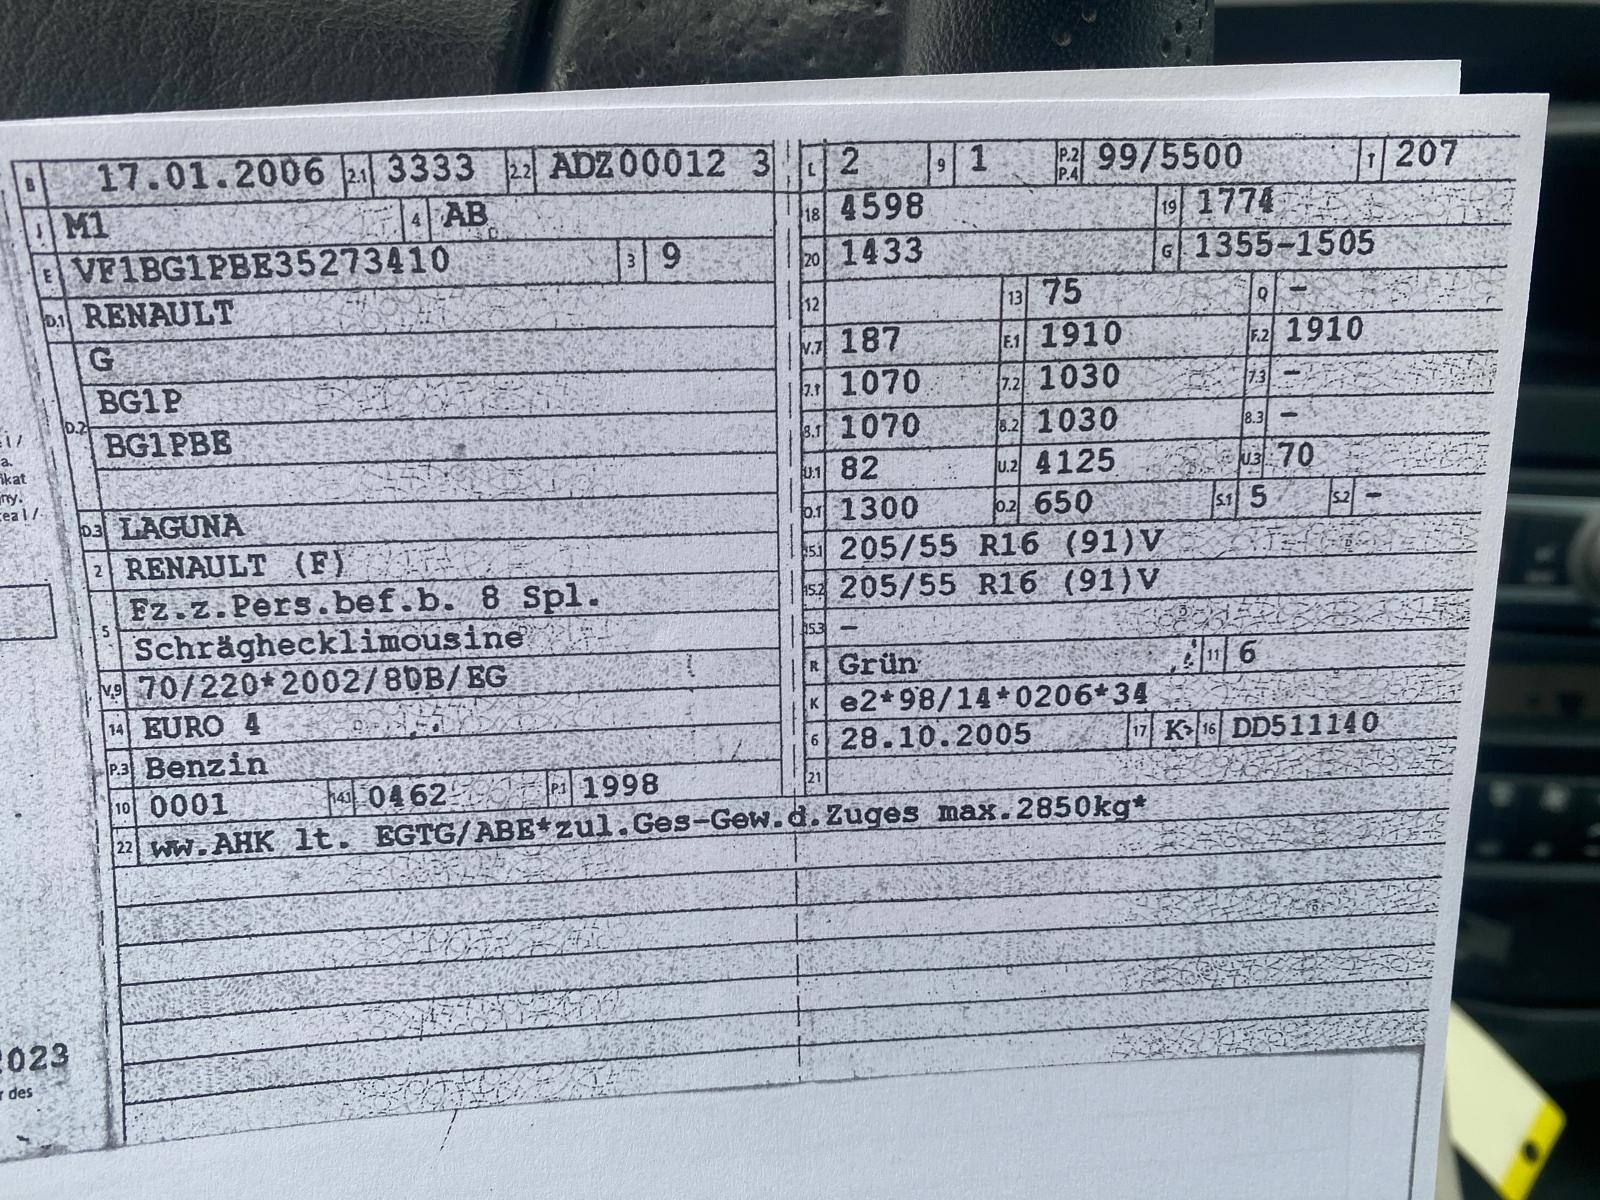 B 17.01.2006 2.1 3333 2.2 ADZ00012 3
J M1 4 AB
E VF1BG1PBE35273410 3 9
D.1 RENAULT
G
BG1P
D.2
BG1PBE
D.3 LAGUNA
2 RENAULT (F)
5 Fz.z.Pers.bef.b. 8 Spl.
Schräghecklimousine
V.9 70/220*2002/80B/EG
14 EURO 4
P.3 Benzin
10 0001 14.1 0462 P.1 1998
22 ww.AHK lt. EGTG/ABE*zul.Ges-Gew.d.Zuges max.2850kg*
L 2 9 1 P.2 P.4 99/5500 T 207
18 4598 19 1774
20 1433 G 1355-1505
12 13 75 Q –
V.7 187 F.1 1910 F.2 1910
7.1 1070 7.2 1030 7.3 –
8.1 1070 8.2 1030 8.3 –
U.1 82 U.2 4125 U.3 70
O.1 1300 O.2 650 S.1 5 S.2 –
15.1 205/55 R16 (91)V
15.2 205/55 R16 (91)V
15.3 –
R Grün 11 6
K e2*98/14*0206*34
6 28.10.2005 17 K 16 DD511140
21
023
des